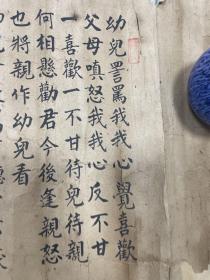 幼兒詈罵我我心覺喜歡
父母嗔怒我我心反不甘
一喜歡一不甘待兒待親
何相懸勸君今後逢親怒
也將親作幼兒看